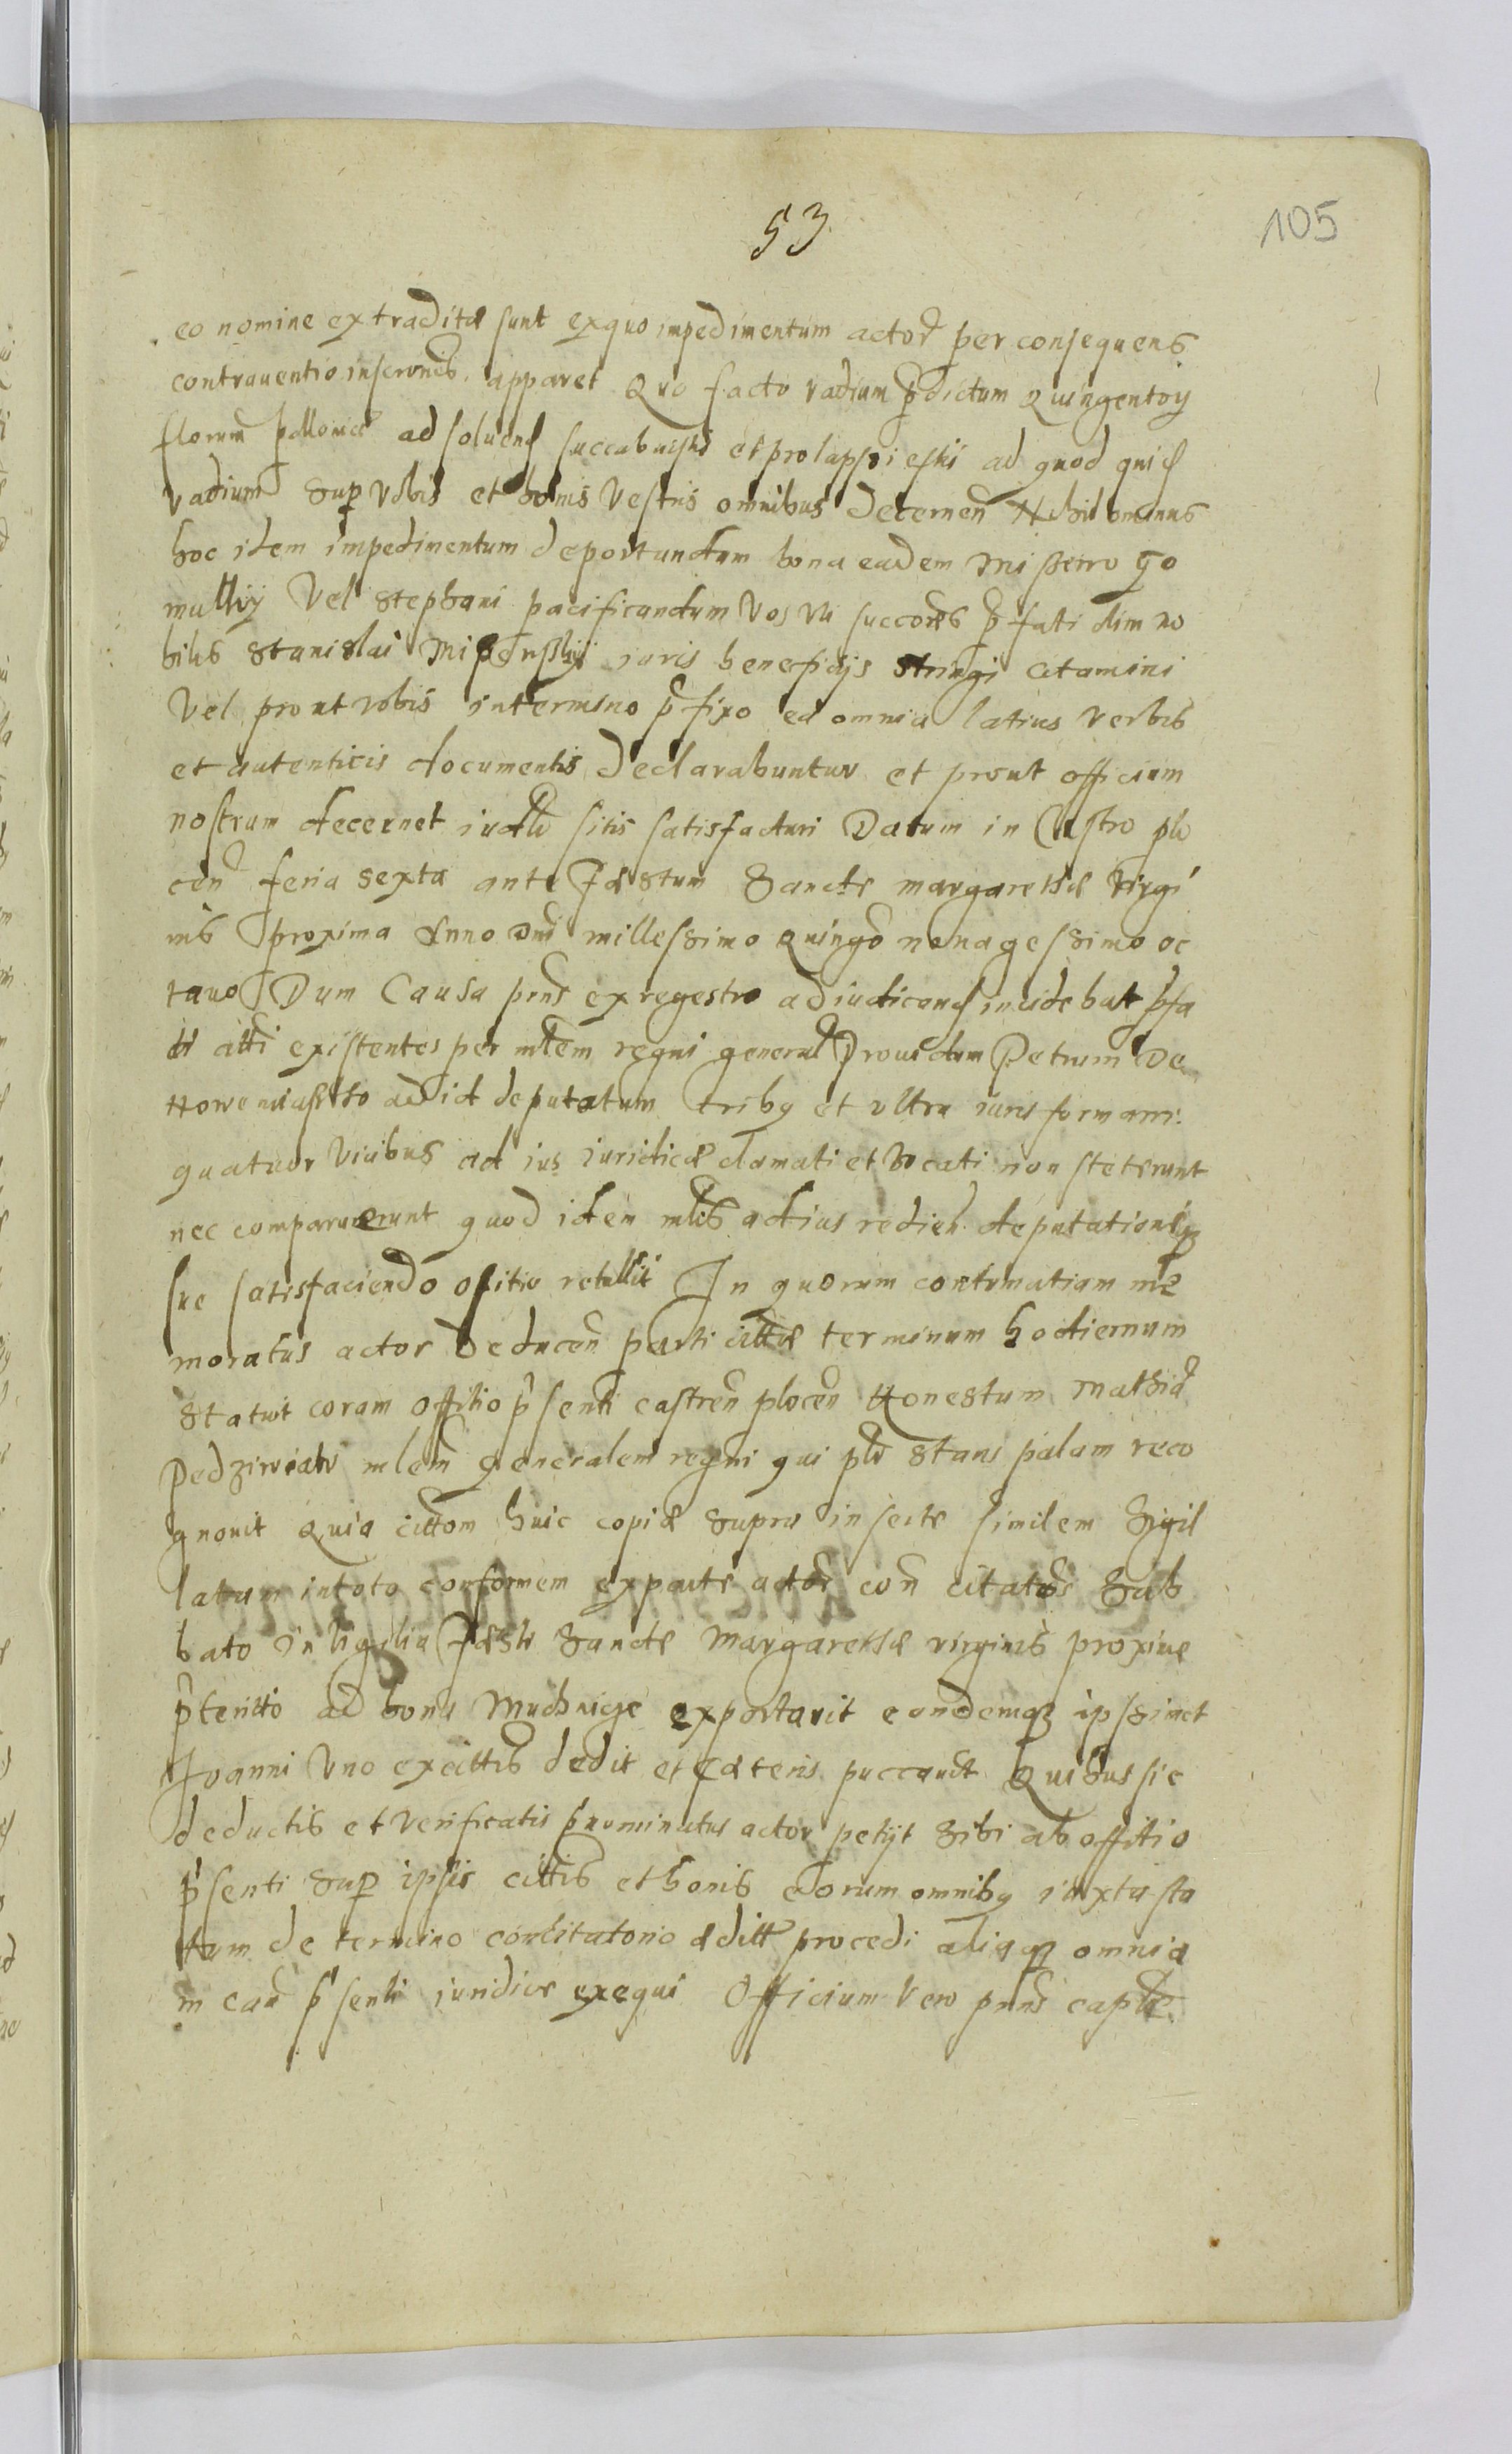 53
105
eo nomine extraditæ sunt exquo impedimentum actor per consequens
contrauentio inscronis apparet Quo facto vadium pdictum Quingentor
floren polloniæ ad soluend succubuistis et prolapsi estis ad quod quid
vadium sup vobis et bonis vestris omnibus decernen Nihilominus
hoc idem impedimentum deportandum bona eadem Misserro Go
mullij vel Stephani pacificandum vos vti succores pfati olim no
bilis Stanislai iuris beneficijs stringi citamini
Vel prout vobis intermino pfixo ea omnia latius verbis
et autenticis documentis declarabuntur et prout officium
nostrum decernet iudle sitis satisfacturi Datum in Castro plo
cen feria sexta ante Fæstum Sancte margarethæ virgi
nis proxima Anno Dni millessimo Quingo nonagessimo oc
tauo Dum Causa pns exregestro adiudicand incidebat pfa
ti citti existentes per mlem regni general Prouidum Petrum De
Nowemiasto ad id deputatum tribq et vltra iuris formam
quatuor vicibus ad ius iuridicæ clamati et vocati non steterunt
nec comparuerunt quod idem mlis actius redien deputationiq
sue satisfaciendo ofitio retullit In quorum contumatiam me
moratus actor Deducen parti cittæ terminum hodiernum
Statuit coram Offitio psenti castren plocen Honestum Mathia
Pedziwiatr mlem generalem regni qui ple stans palam reco
gnouit Quia cittom huic copiæ supra inserte similem Sigil
latum intoto conformem exparte actor con citatos Sab
bato in vigilia Fæsti Sanctæ Margarethæ virginis proxime
pteritto ad bona exportavit eandemq ipsimet
Ioanni vno excittis dedit et cæteris puccauit Quibus sic
deductis et verificatis pnominatus actor petijt Sibi ab offitio
psenti sup ipsis cittis et bonis eorum omnibq iuxta sta
tum de termino concitatorio æditt procedi aliaq omnia
in cau psenti iuridice exequi Officium vero pnns capte